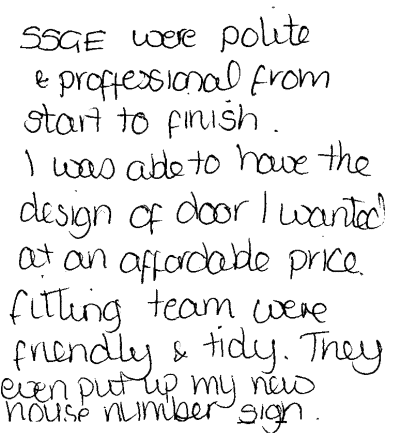 SSGE were polite
& proffessional from
start to finish.
I was able to have the
design of door I wanted
at an affordable price.
fitting team were
friendly & tidy. They
even put up my new
house number sign.